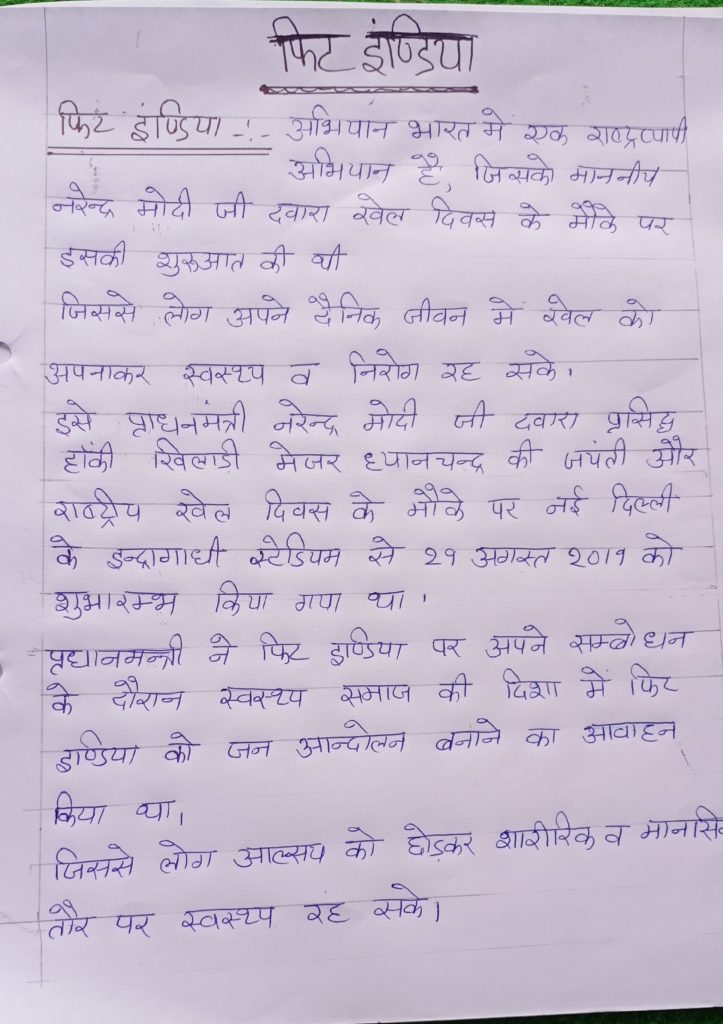 फिट इण्डिया
फिट इंण्डिया -:- अभियान भारत में एक राष्ट्रव्यापी
अभियान है, जिसको माननीय
नरेन्द्र मोदी जी दवारा खेल दिवस के मौके पर
इसकी शुरुआत की थी
जिससे लोग अपने दैनिक जीवन में खेल को
अपनाकर स्वस्थ्य व निरोग रह सके।
इसे प्राधनमंत्री नरेन्द्र मोदी जी दवारा प्रसिद्ध
हॉकी खिलाडी मेजर ध्यानचन्द्र की जयंती और
राष्ट्रीय खेल दिवस के मौके पर नई दिल्ली
के इन्द्रागाधी स्टेडियम से 29 अगस्त 2019 को
शुभारम्भ किया गया था।
प्रधानमन्त्री ने फिट इण्डिया पर अपने सम्बोधन
के दौरान स्वस्थ्य समाज की दिशा में फिट
इण्डिया को जन आन्दोलन बनाने का आवाहन
किया था।
जिससे लोग आल्सय को छोड़कर शारीरिक व मानसि
तौर पर स्वस्थ्य रह सके।